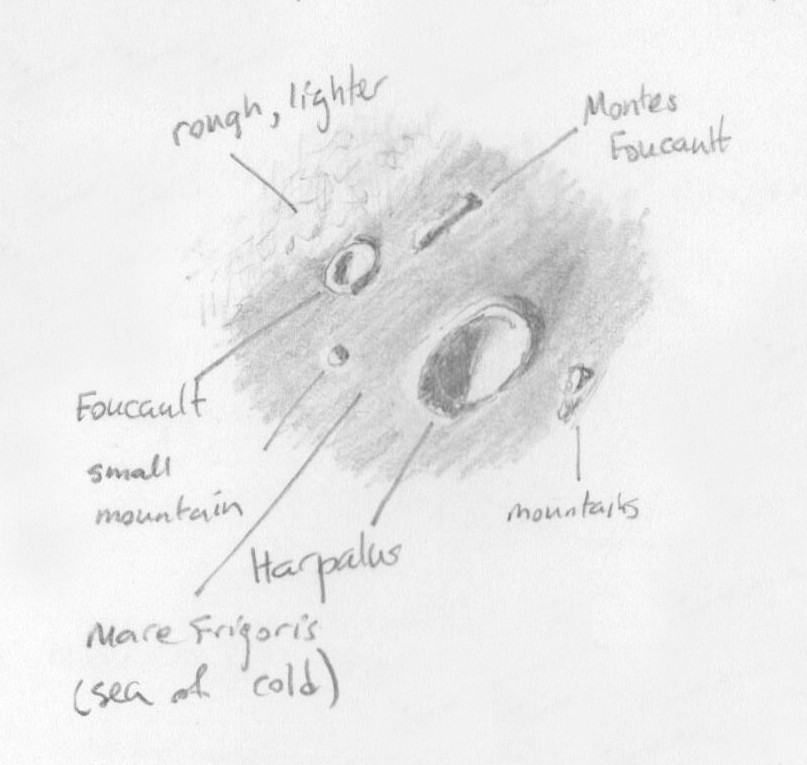 rough, lighter
Montes
Foucault
Foucault
small
mountain
Harpalus
mountains
Mare Frigoris
(sea of cold)